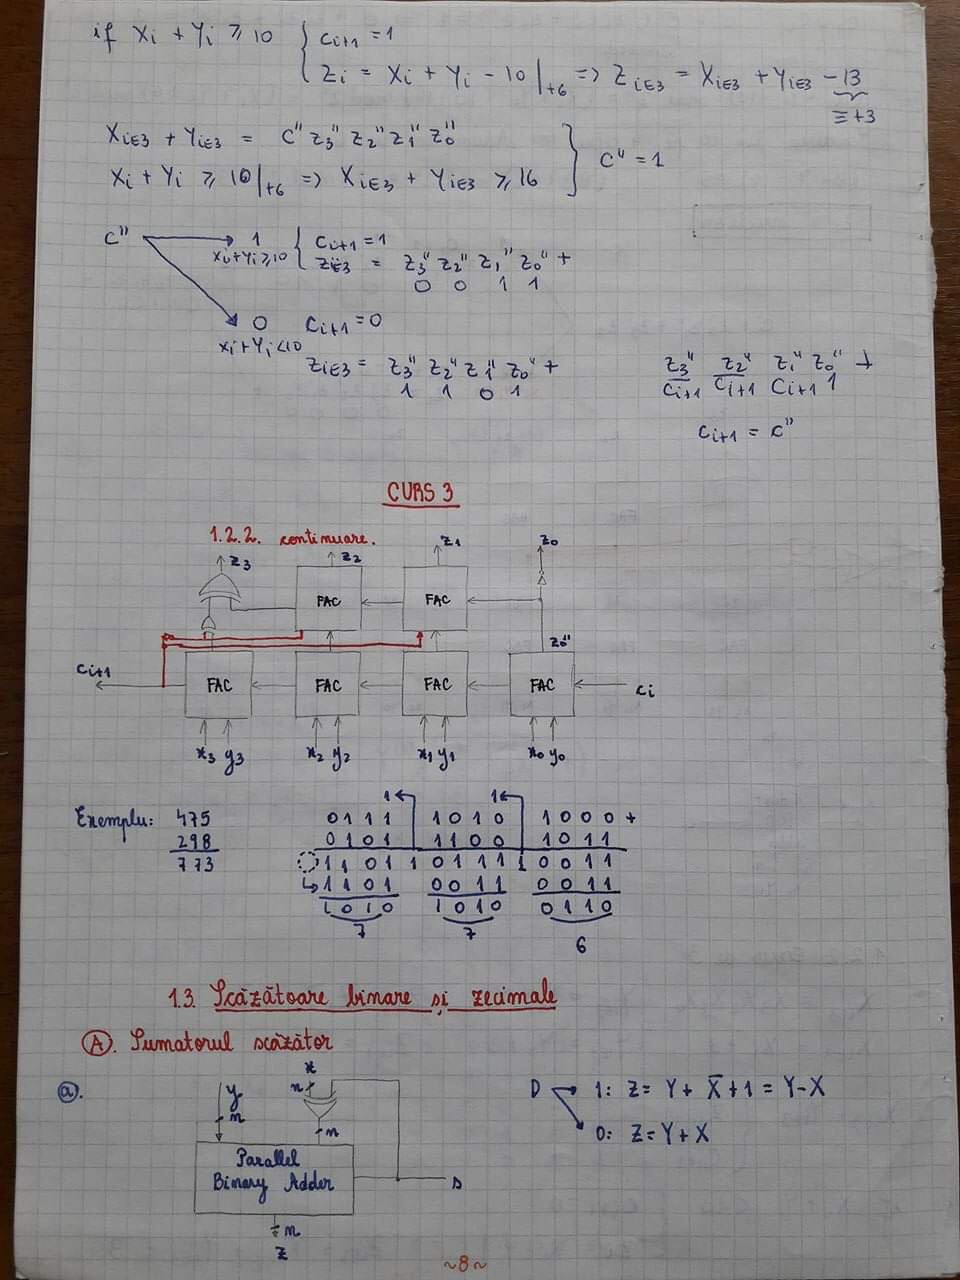 if Xi + Yi ≥ 10 { Ci+1 = 1
Zi = Xi + Yi - 10 |+6 => ZiE3 = XiE3 + YiE3 - 13
≡ +3
XiE3 + YiE3 = C" Z3" Z2" Z1" Z0"
Xi + Yi ≥ 10 |+6 => XiE3 + YiE3 ≥ 16 } C" = 1
C" → 1 { Ci+1 = 1
Xi+Yi ≥ 10 ZiE3 = Z3" Z2" Z1" Z0" +
0 0 1 1
0 Ci+1 = 0
Xi+Yi < 10
ZiE3 = Z3" Z2" Z1" Z0" +
1 1 0 1
Z3" Z2" Z1" Z0" +
C̅i+1 C̅i+1 Ci+1 1
Ci+1 = C"
CURS 3
1.2.2. continuare.
Z3 Z2 Z1 Z0
FAC FAC
Z0"
Ci+1 FAC FAC FAC FAC Ci
x3 y3 x2 y2 x1 y1 x0 y0
1 1
Exemplu: 475 0111 1010 1000 +
298 0101 1100 1011
773 1101 1 0111 1 0011
1101 0011 0011
1010 1010 0110
7 7 6
1.3. Scăzătoare binare și zecimale
A. Sumatorul scăzător
a.
x
n
y
n
n
Parallel
Binary Adder
s
n
Z
D 1: Z = Y + X̅ + 1 = Y - X
0: Z = Y + X
~8~